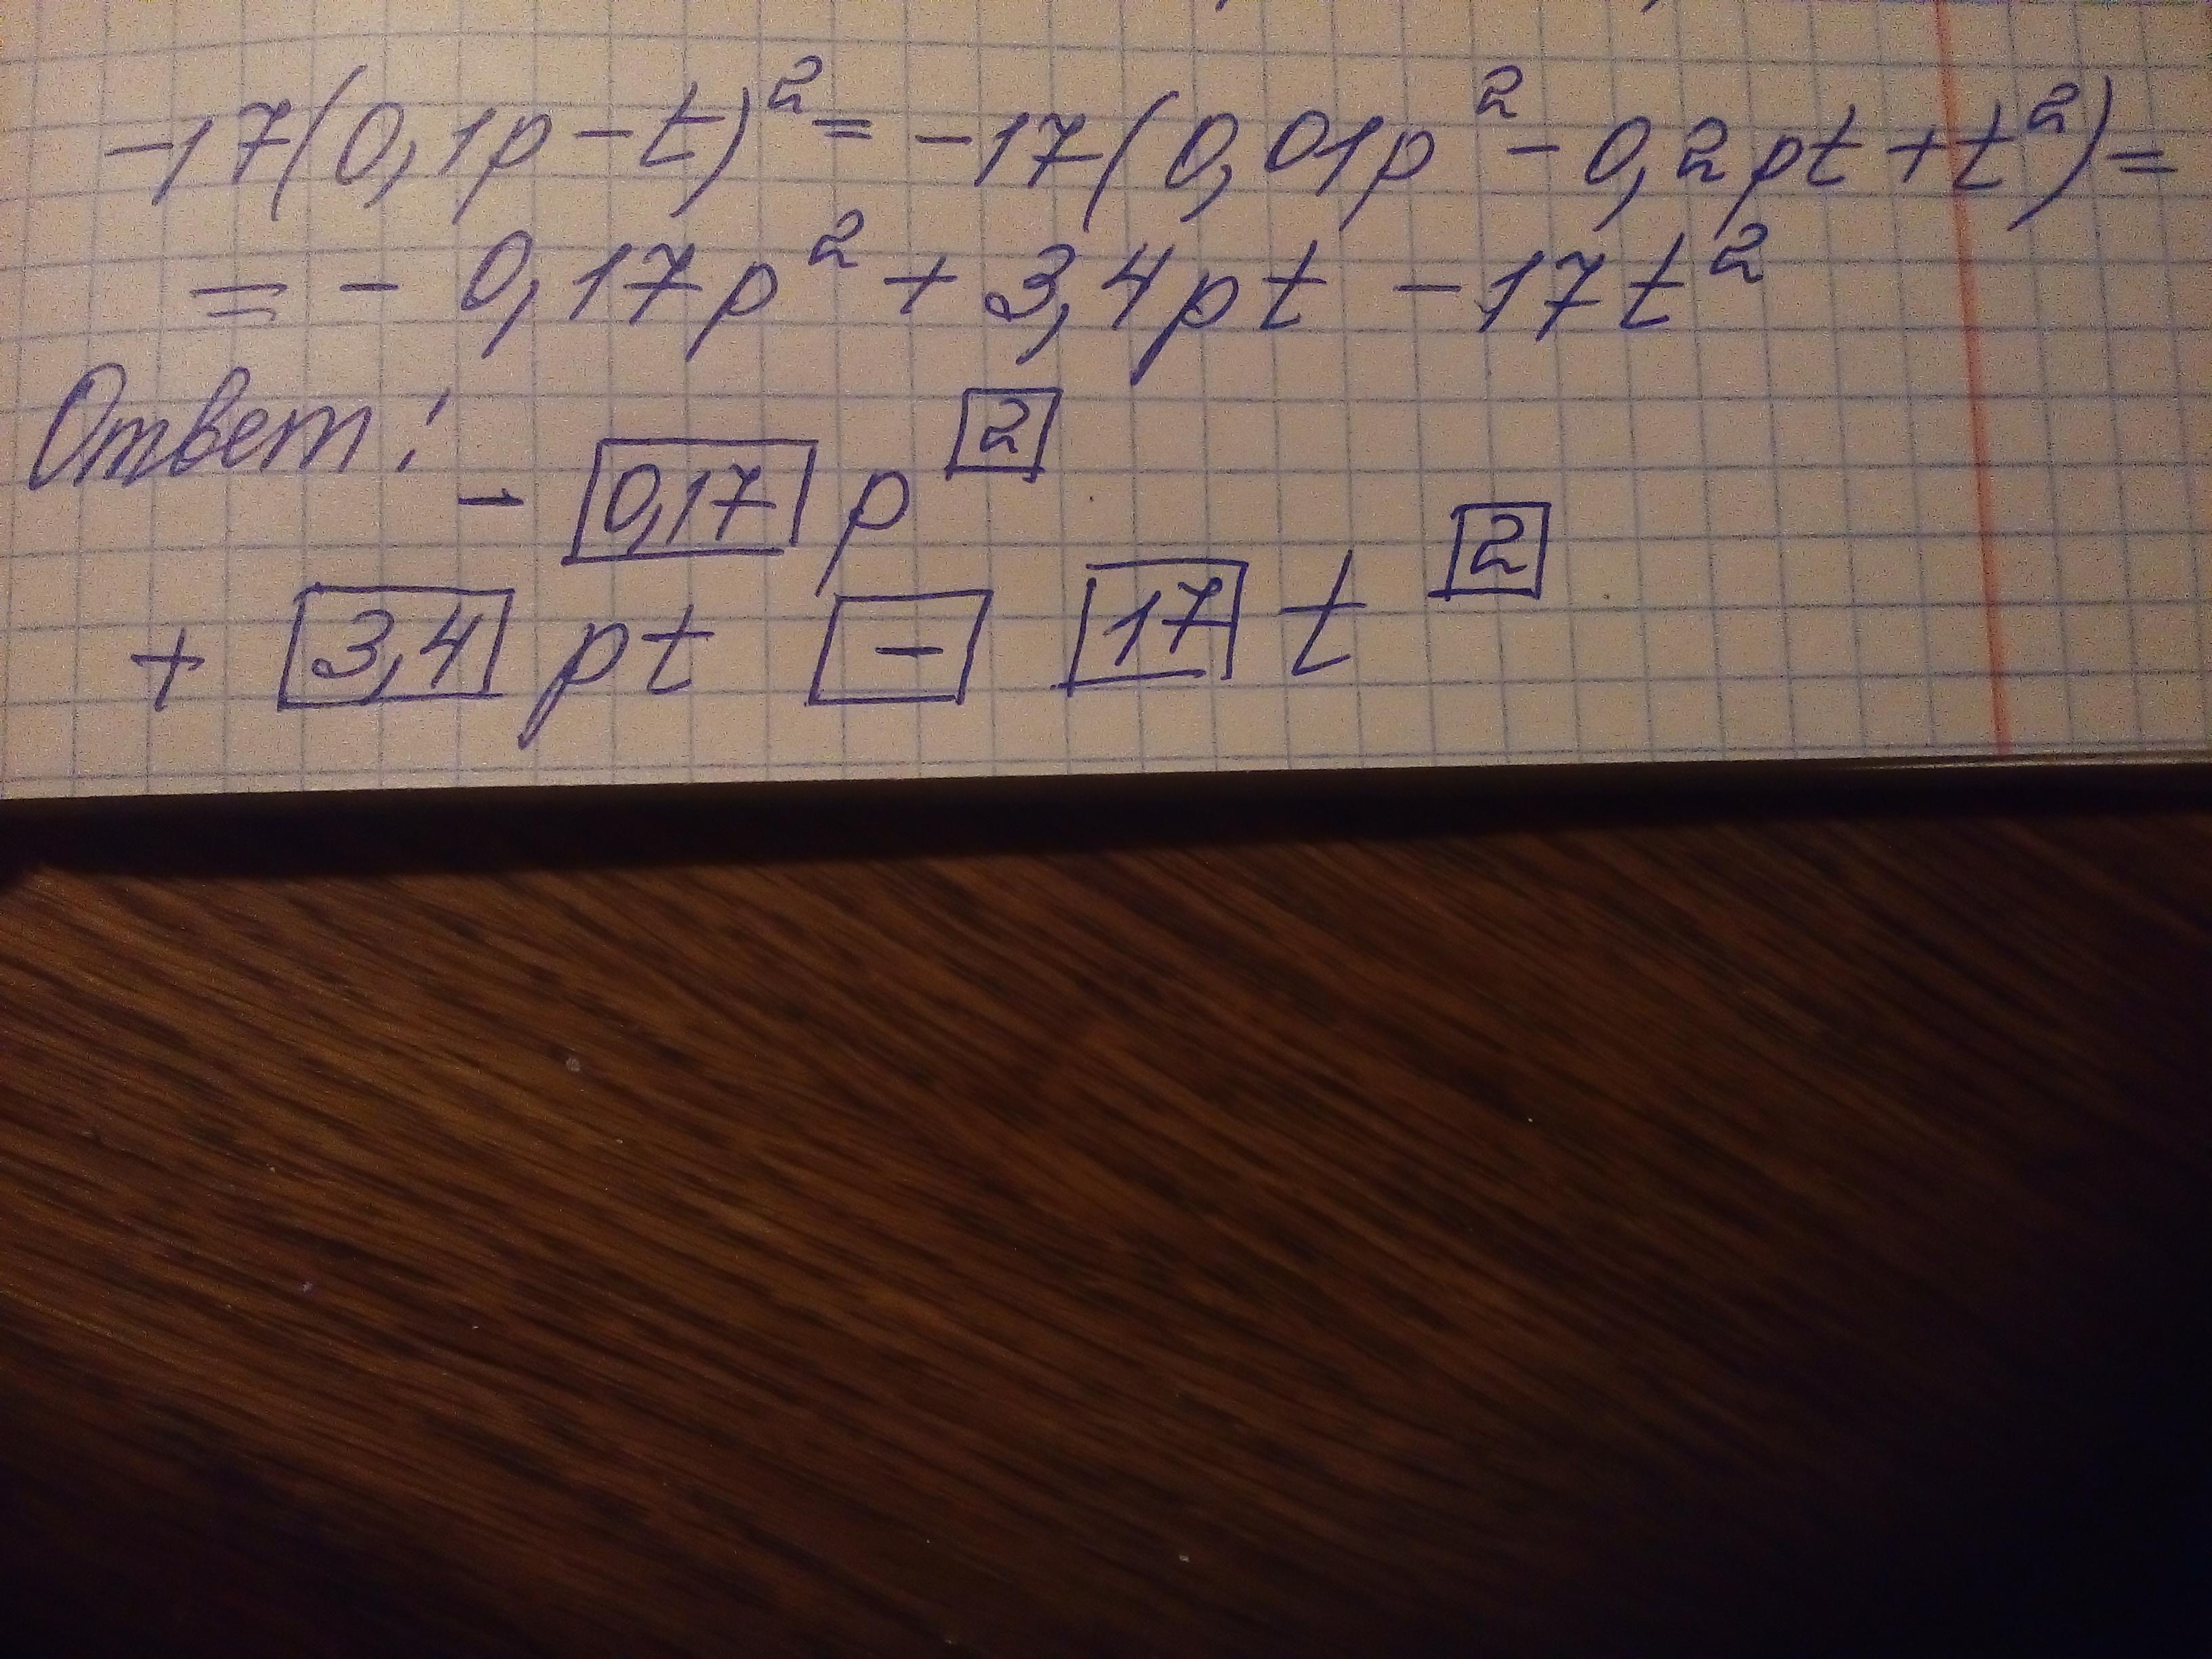 -17(0,1p-t)²= -17(0,01p²-0,2pt+t²)=
=- 0,17p²+3,4pt -17t²
Ответ: - 0,17 p 2
+ 3,4 pt - 17 t 2